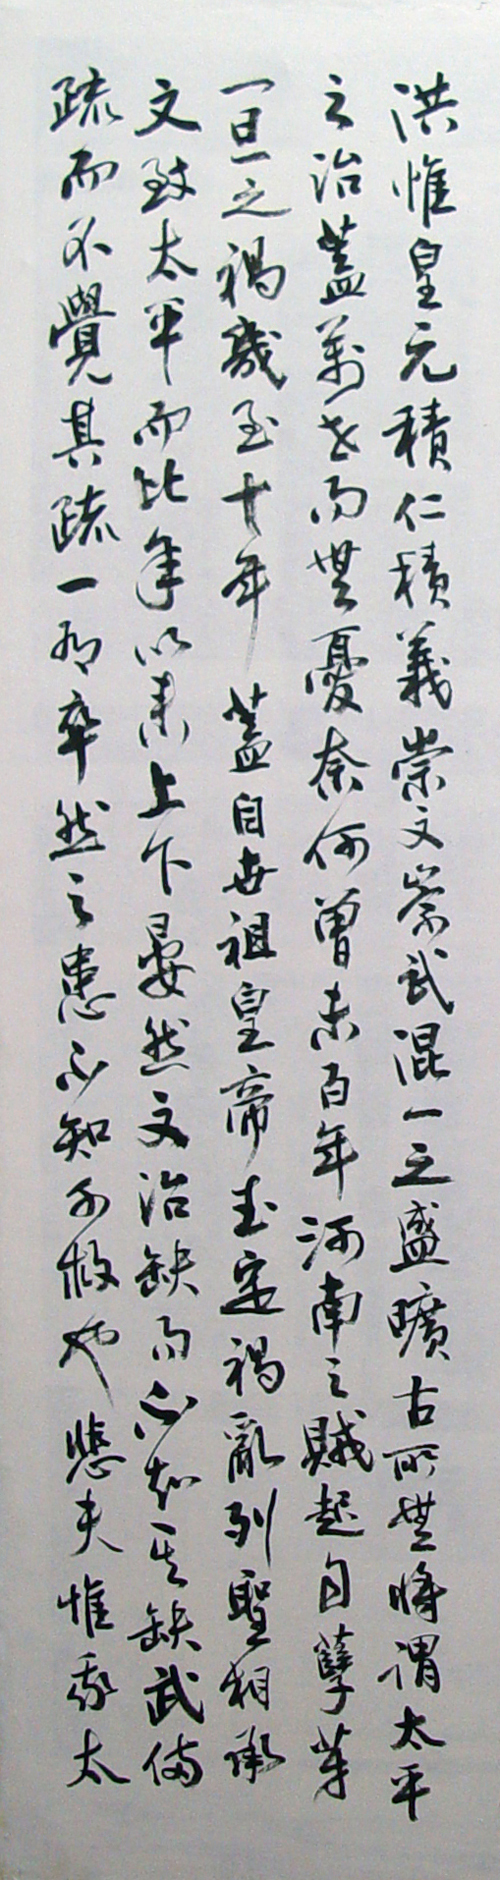 洪惟皇元積仁積義崇文崇武混一之盛曠古所無將謂太平
之治蓋萬世而無憂奈何曾未百年河南之賊起自孽芽
一旦之禍幾至十年蓋自世祖皇帝武定禍亂列聖相承
文致太平而比年以來上下晏然文治缺而不知其缺武備
疏而不覺其疏一有卒然之患不知所救也悲夫惟我太